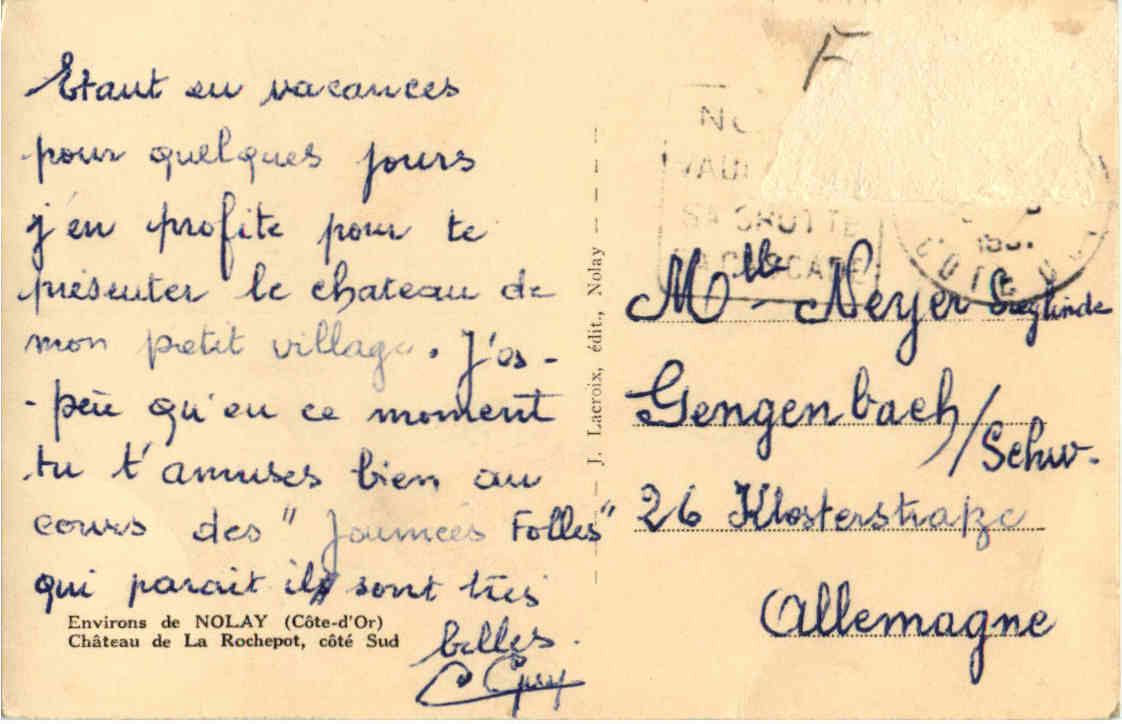 Etant en vacances
pour quelques jours
j'en profite pour te
présenter le chateau de
mon petit village. J'es-
-père qu'en ce moment
tu t'amuses bien au
cours des "Journées Folles"
qui parait il sont très
belles.
Guy
Environs de NOLAY (Côte-d'Or)
Château de La Rochepot, côté Sud
J. Lacroix, édit., Nolay
F
SA GROTTE
Mlle Neyer Sieglinde
Gengenbach/Schw.
26 Klosterstraße
Allemagne